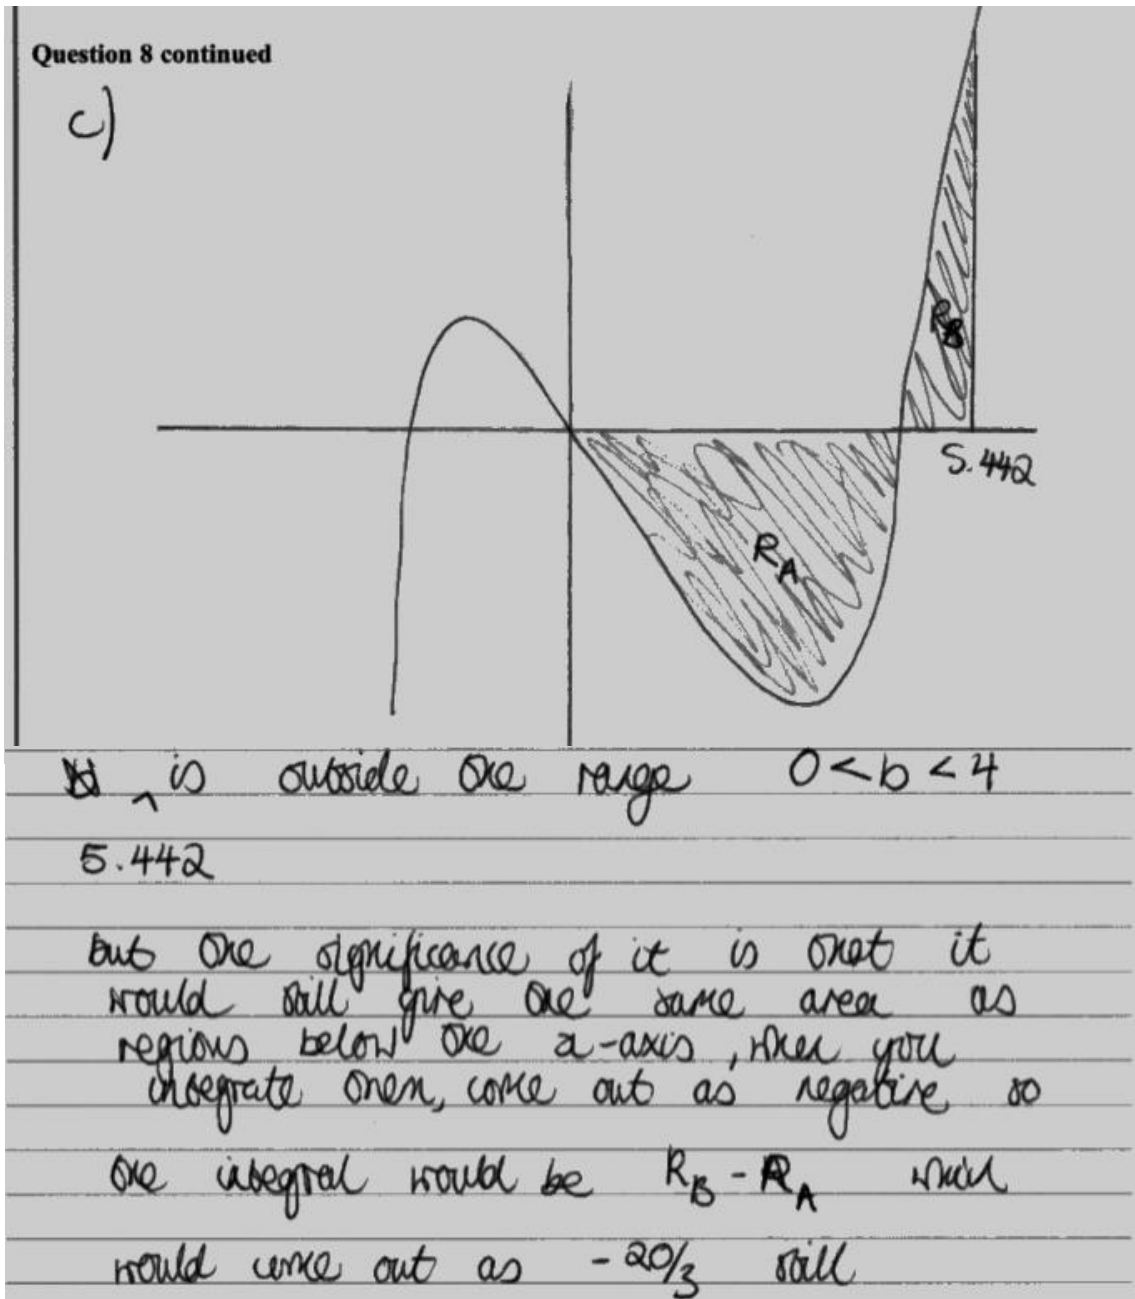 Question 8 continued
c)
RB
5.442
RA
is outside the range 0 < b < 4
5.442
but the significance of it is that it
would still give the same area as
regions below the x-axis, when you
integrate them, come out as negative so
the integral would be RB - RA which
would come out as -20/3 still